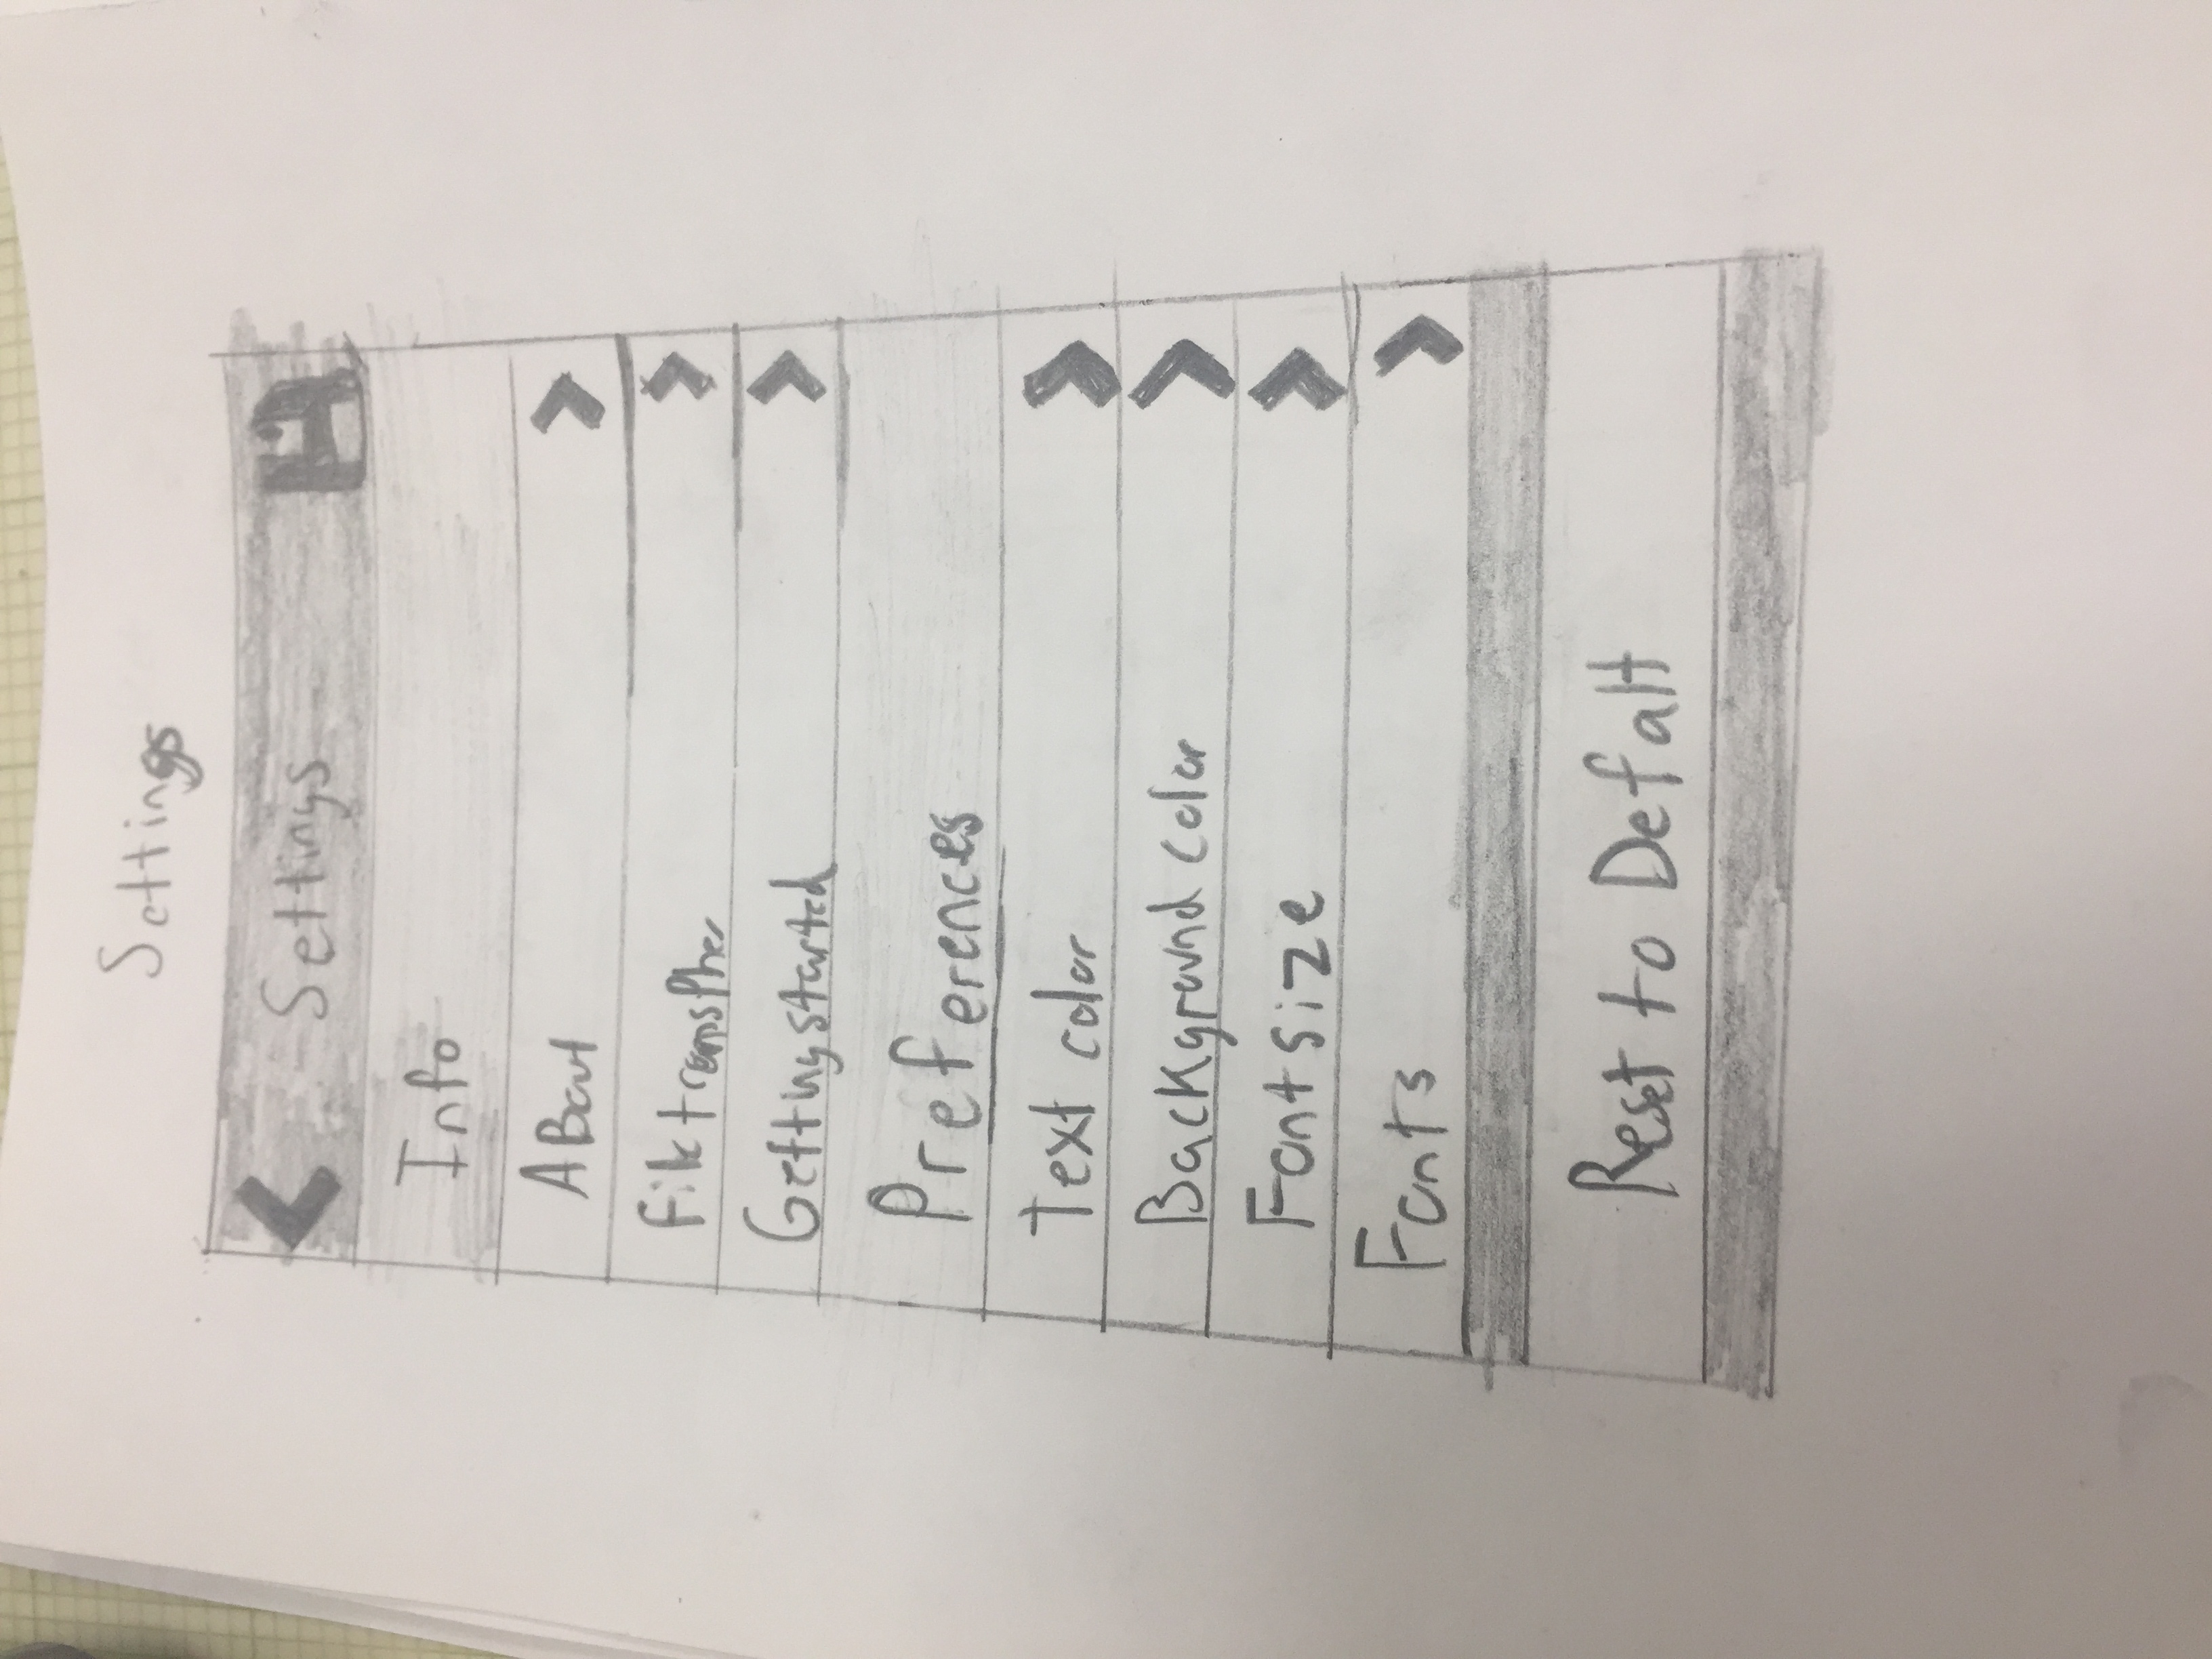 Settings
Settings
Info
ABout
File transpher
Getting started
Preferences
Text color
Background color
Font size
Fonts
Reset to Defalt